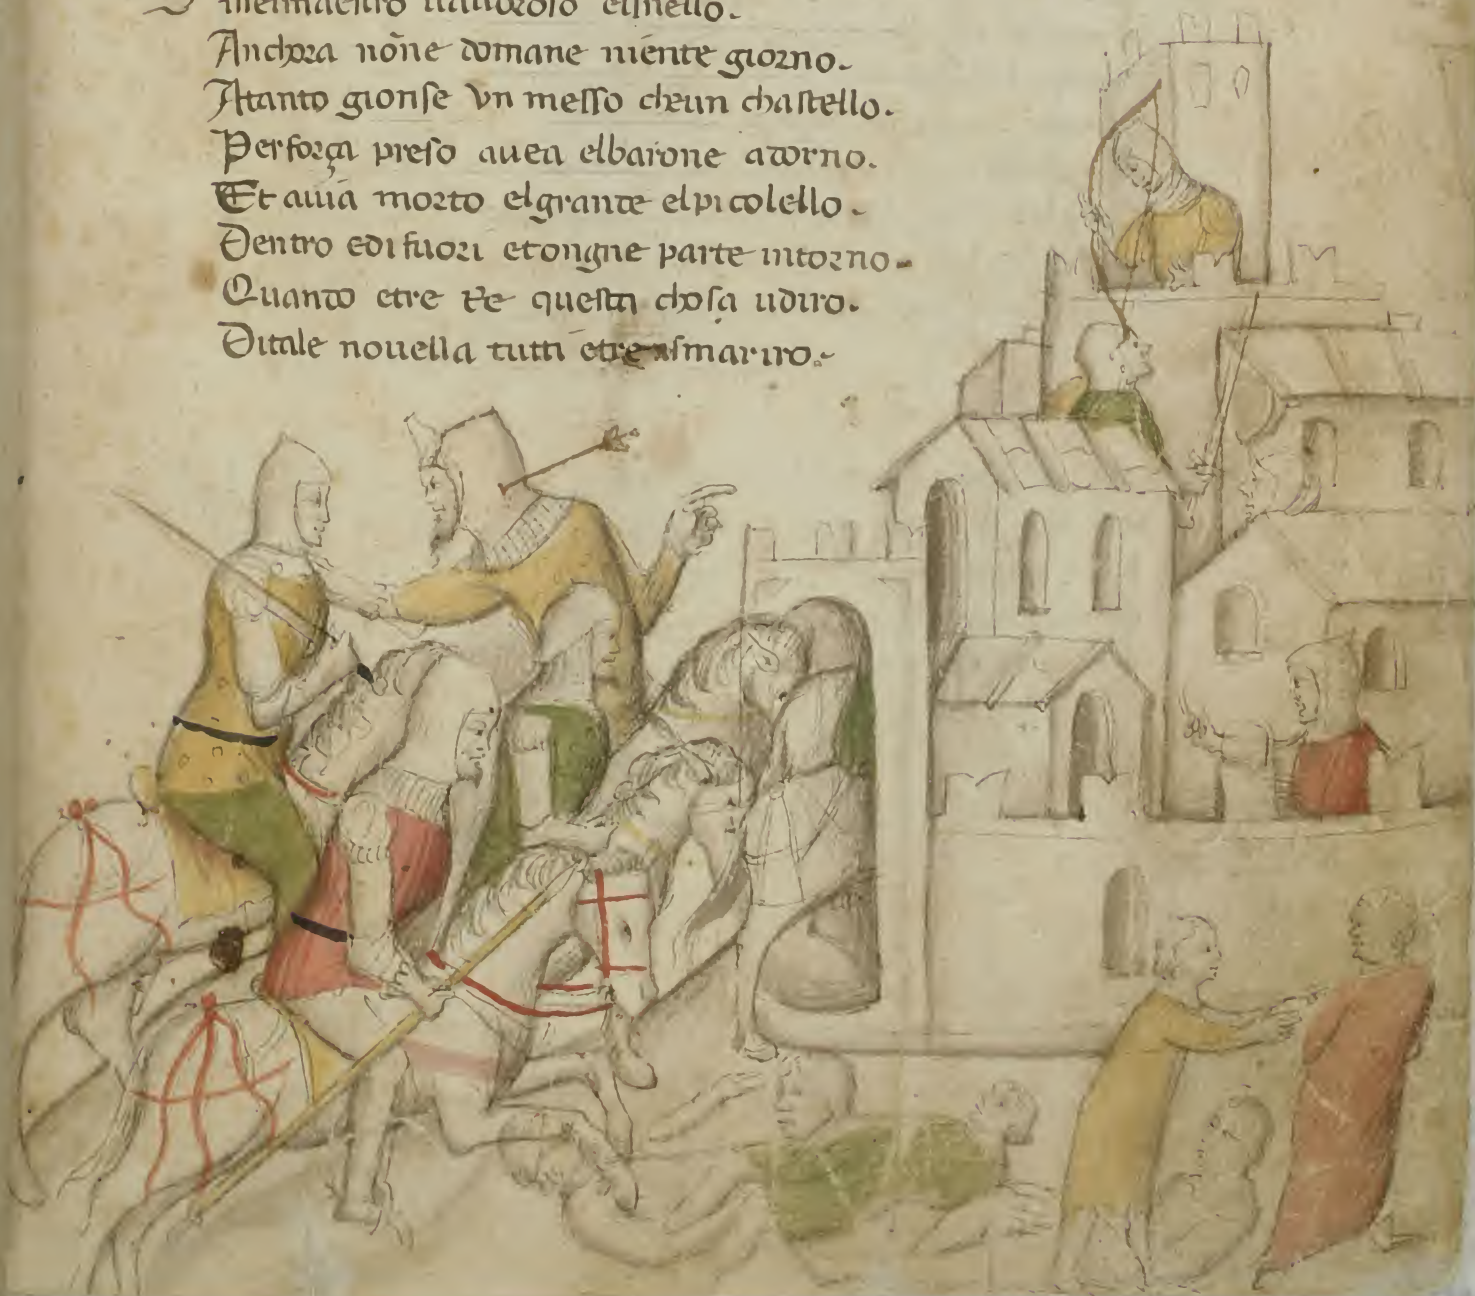 Anchora nōne domane niente giorno.
Atanto gionse vn messo cheun chastello.
Perforça preso auea elbarone adorno.
Et auiā morto elgrande elpicolello.
Dentro edi fuori et ongne parte intorno.
Quando etre Re questa chosa udiro.
Ditale nouella tutti etre smariro.